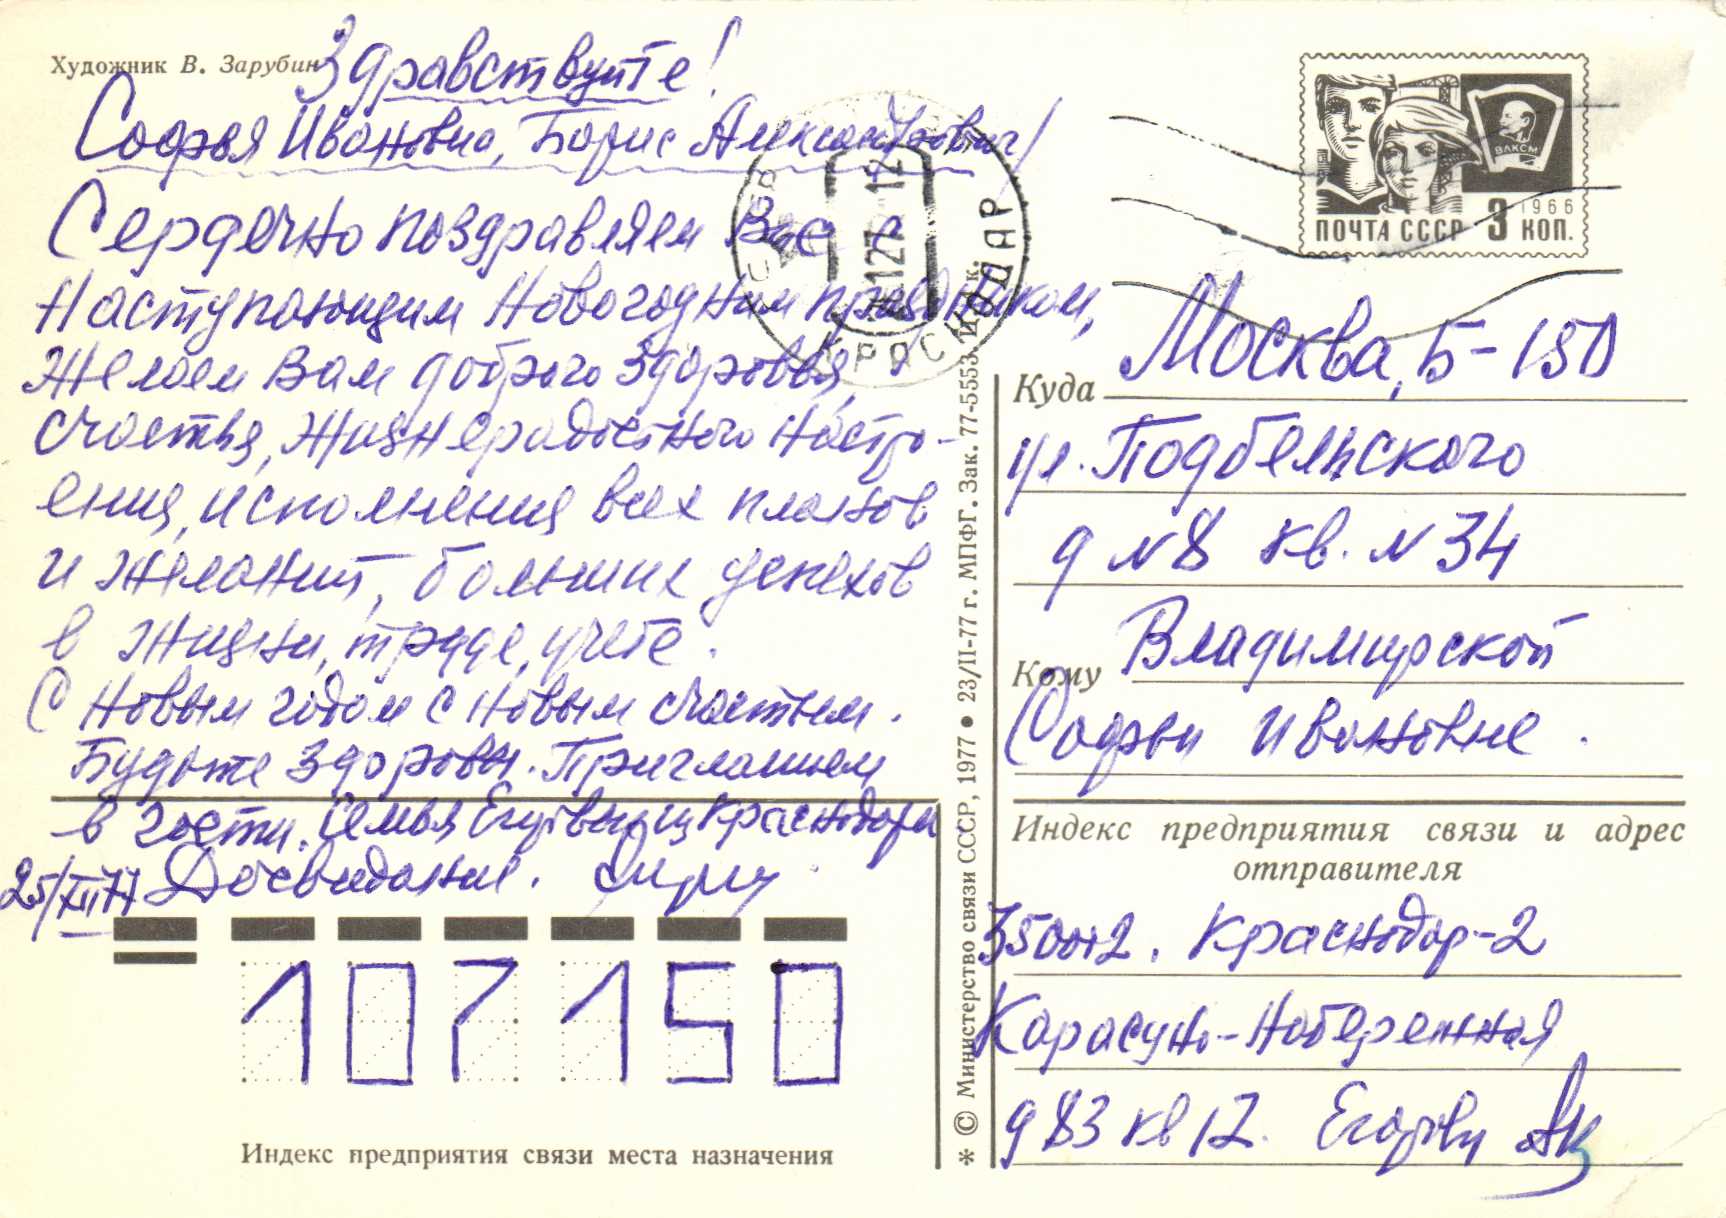 Художник В. Зарубин
Здравствуйте!
Софья Ивановна, Борис Александрович!
Сердечно поздравляем Вас с
наступающим Новогодним праздником,
Желаем Вам доброго здоровья,
счастья, жизнерадостного настро-
ения, исполнения всех планов
и желаний, больших успехов
в жизни, труде, учебе.
С Новым годом с новым счастьем.
Будьте здоровы. Приглашаем
в гости. Семья Егоровых из Краснодара
25/XII 77 Досвидание.
107150
Индекс предприятия связи места назначения
* © Министерство связи СССР, 1977 • 23/II-77 г. МПФГ. Зак. 77-5553. Ц. 4 к.
СССР
КРАСНОДАР
ВЛКСМ
1966
ПОЧТА СССР 3 КОП.
Куда Москва, Б-150
ул. Подбельского
д N 8 кв. N 34
Кому Владимирской
Софьи Ивановне.
Индекс предприятия связи и адрес
отправителя
350002. Краснодар-2
Карасунь-Набережная
д 83 кв 12. Егоров